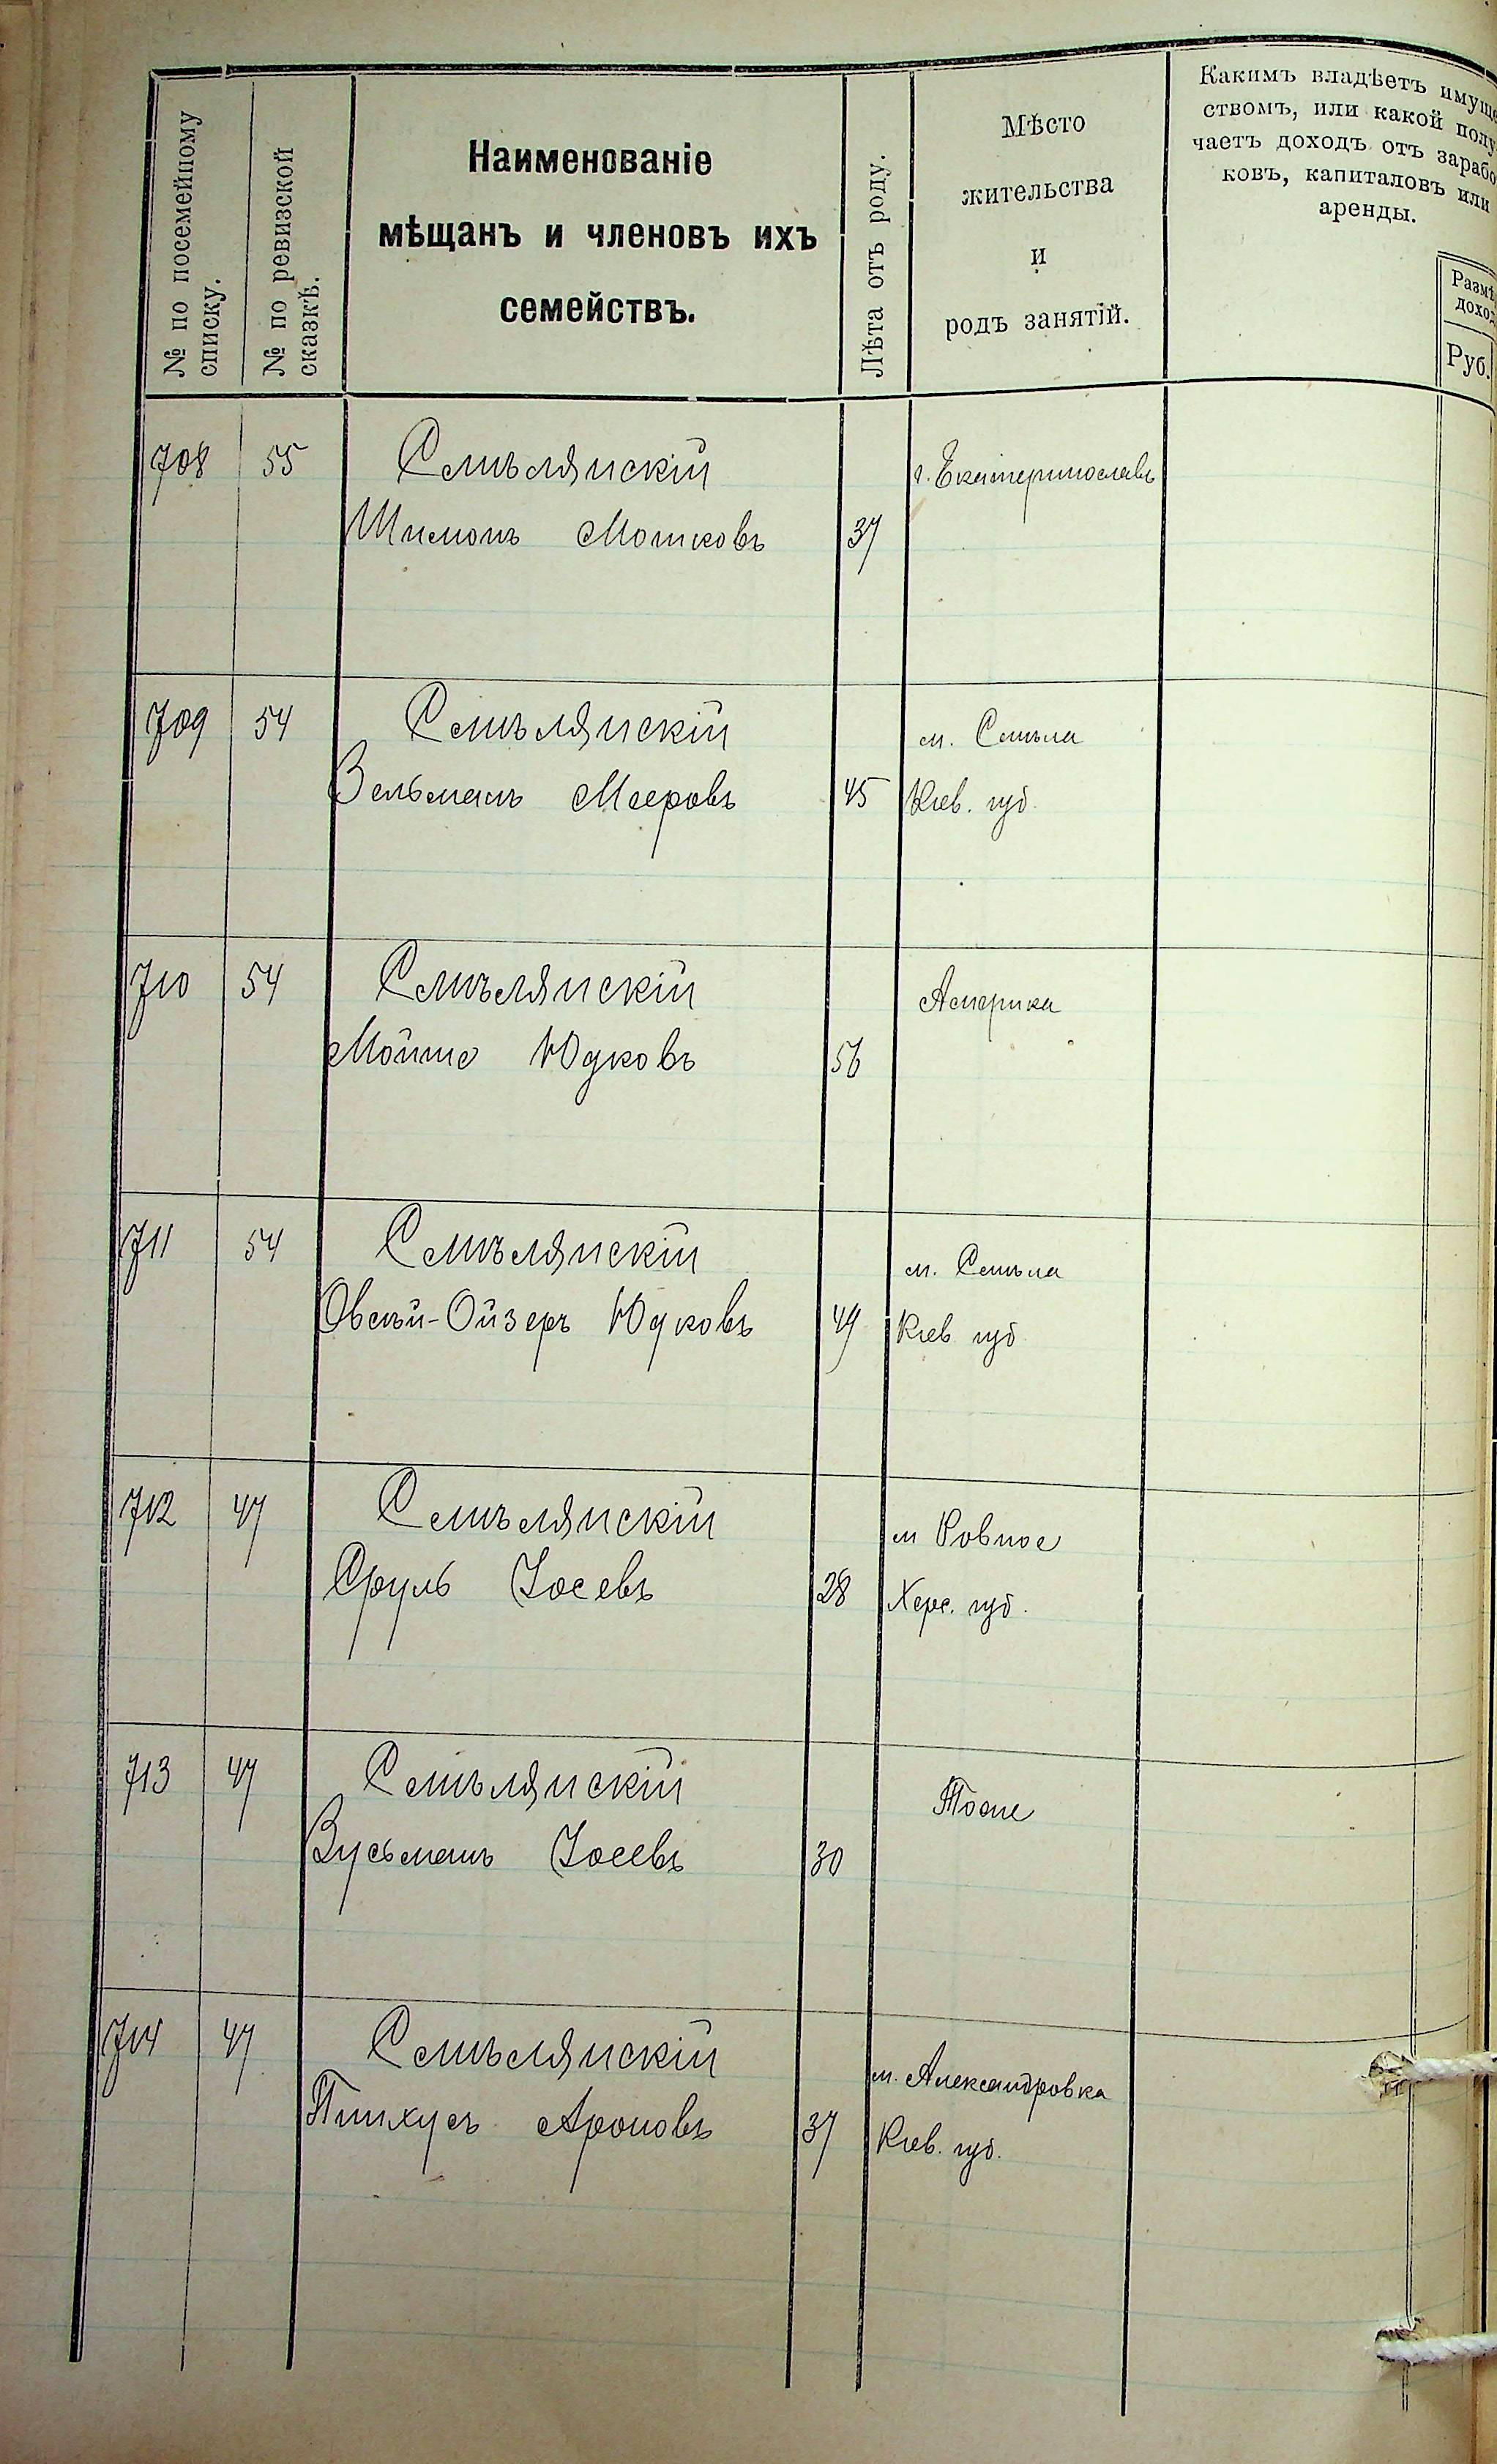 № по посемейному
списку.
№ по ревизской
сказкѣ.
Наименованіе
мѣщанъ и членовъ ихъ
семействъ.
Лѣта отъ роду.
Мѣсто
жительства
и
родъ занятій.
Какимъ владѣетъ имуще
ствомъ, или какой полу
чаетъ доходъ отъ зарабо
ковъ, капиталовъ или
аренды.
Размѣ
доход
Руб.
708 55 Смѣлянскій г. Екатеринославъ
Шимонъ Мошковъ 37
709 54 Смѣлянскій м. Смѣла
Зельманъ Мееровъ 45 Кіев. губ.
710 54 Смѣлянскій Америка
Мойше Юдковъ 56
711 54 Смѣлянскій м. Смѣла
Овсѣй-Ойзеръ Юдковъ 49 Кіев губ
712 47 Смѣлянскій м Ровное
Сруль Іосевъ 28 Херс. губ.
713 47 Смѣлянскій Тоже
Зусьманъ Іосевъ 30
714 47 Смѣлянскій м. Александровка
Пинхусъ Ароновъ 37 Кіев. губ.